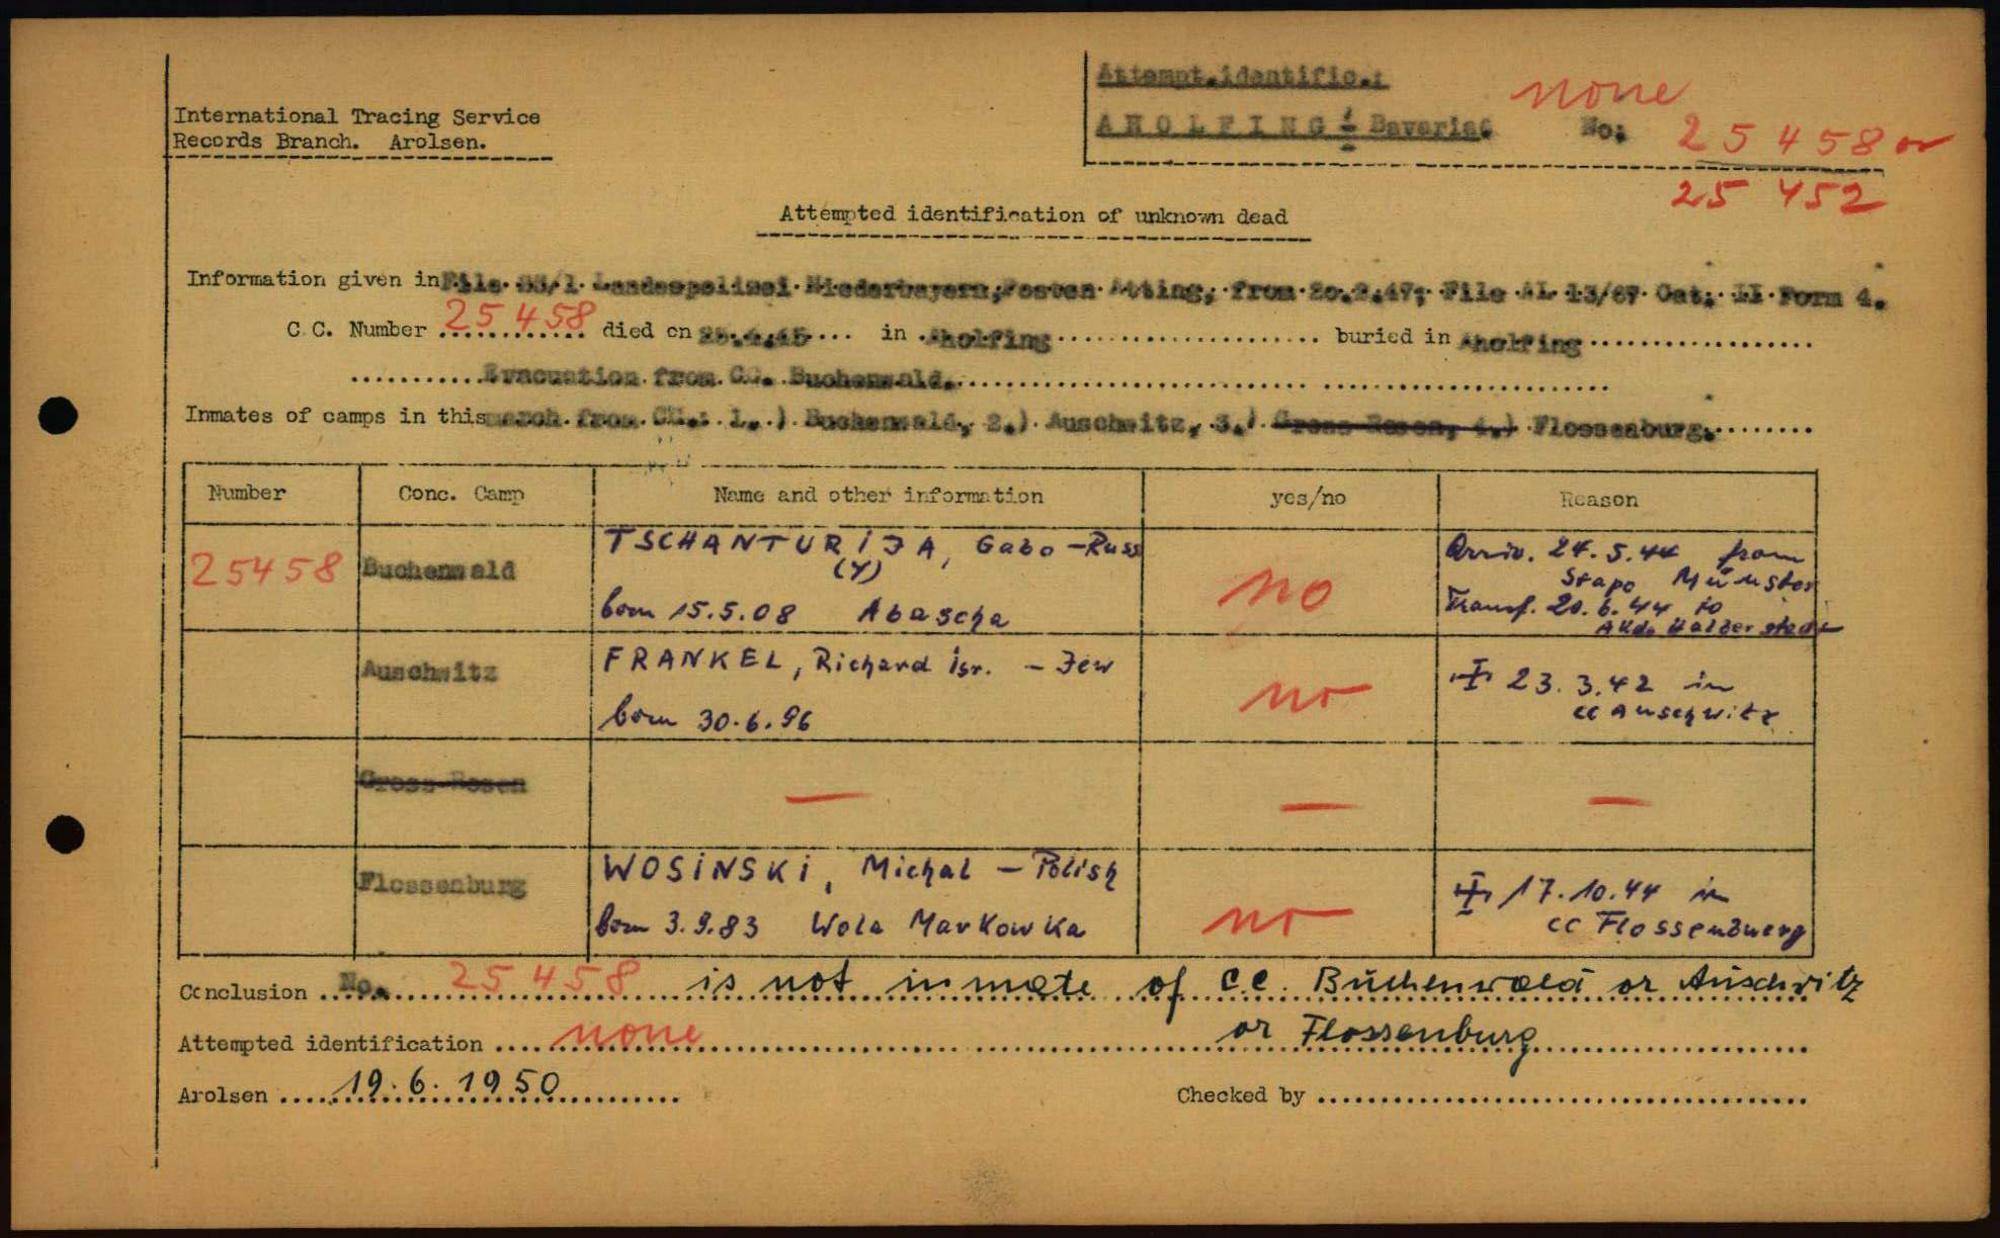 International Tracing Service
Records Branch. Arolsen.
Attempt.identific.:
none
AHOLFING - Bavaria.
No:
25458 or
25 452
Attempted identification of unknown dead
Information given in File Landespolizei Niederbayern, Posten Atting, from 20.2.47; File AL 13/67 Cat. II Form 4.
C.C. Number 25458 died on in Aholfing buried in Aholfing
Evacuation from CC. Buchenwald.
Inmates of camps in this march from 1.) Buchenwald, 2.) Auschwitz, 3.) Gross Rosen, 4.) Flossenburg.
Number Conc. Camp Name and other information yes/no Reason
25458 Buchenwald TSCHANTURIJA, Gabo - Russ
(Y)
born 15.5.08 Abascha
no
Arriv. 24.5.44 from
Stapo Münster
Transf. 20.6.44 to
AKdo Halberstadt
Auschwitz FRANKEL, Richard Isr. - Jew
born 30.6.96
no
23.3.42 in
cc Auschwitz
Gross Rosen — — —
Flossenburg WOSINSKI, Michal - Polish
born 3.9.83 Wola Markowka
no
17.10.44 in
cc Flossenbuerg
Conclusion No. 25458 is not inmate of C.C. Buchenwald or Auschwitz
or Flossenburg
Attempted identification none
Arolsen 19.6.1950
Checked by